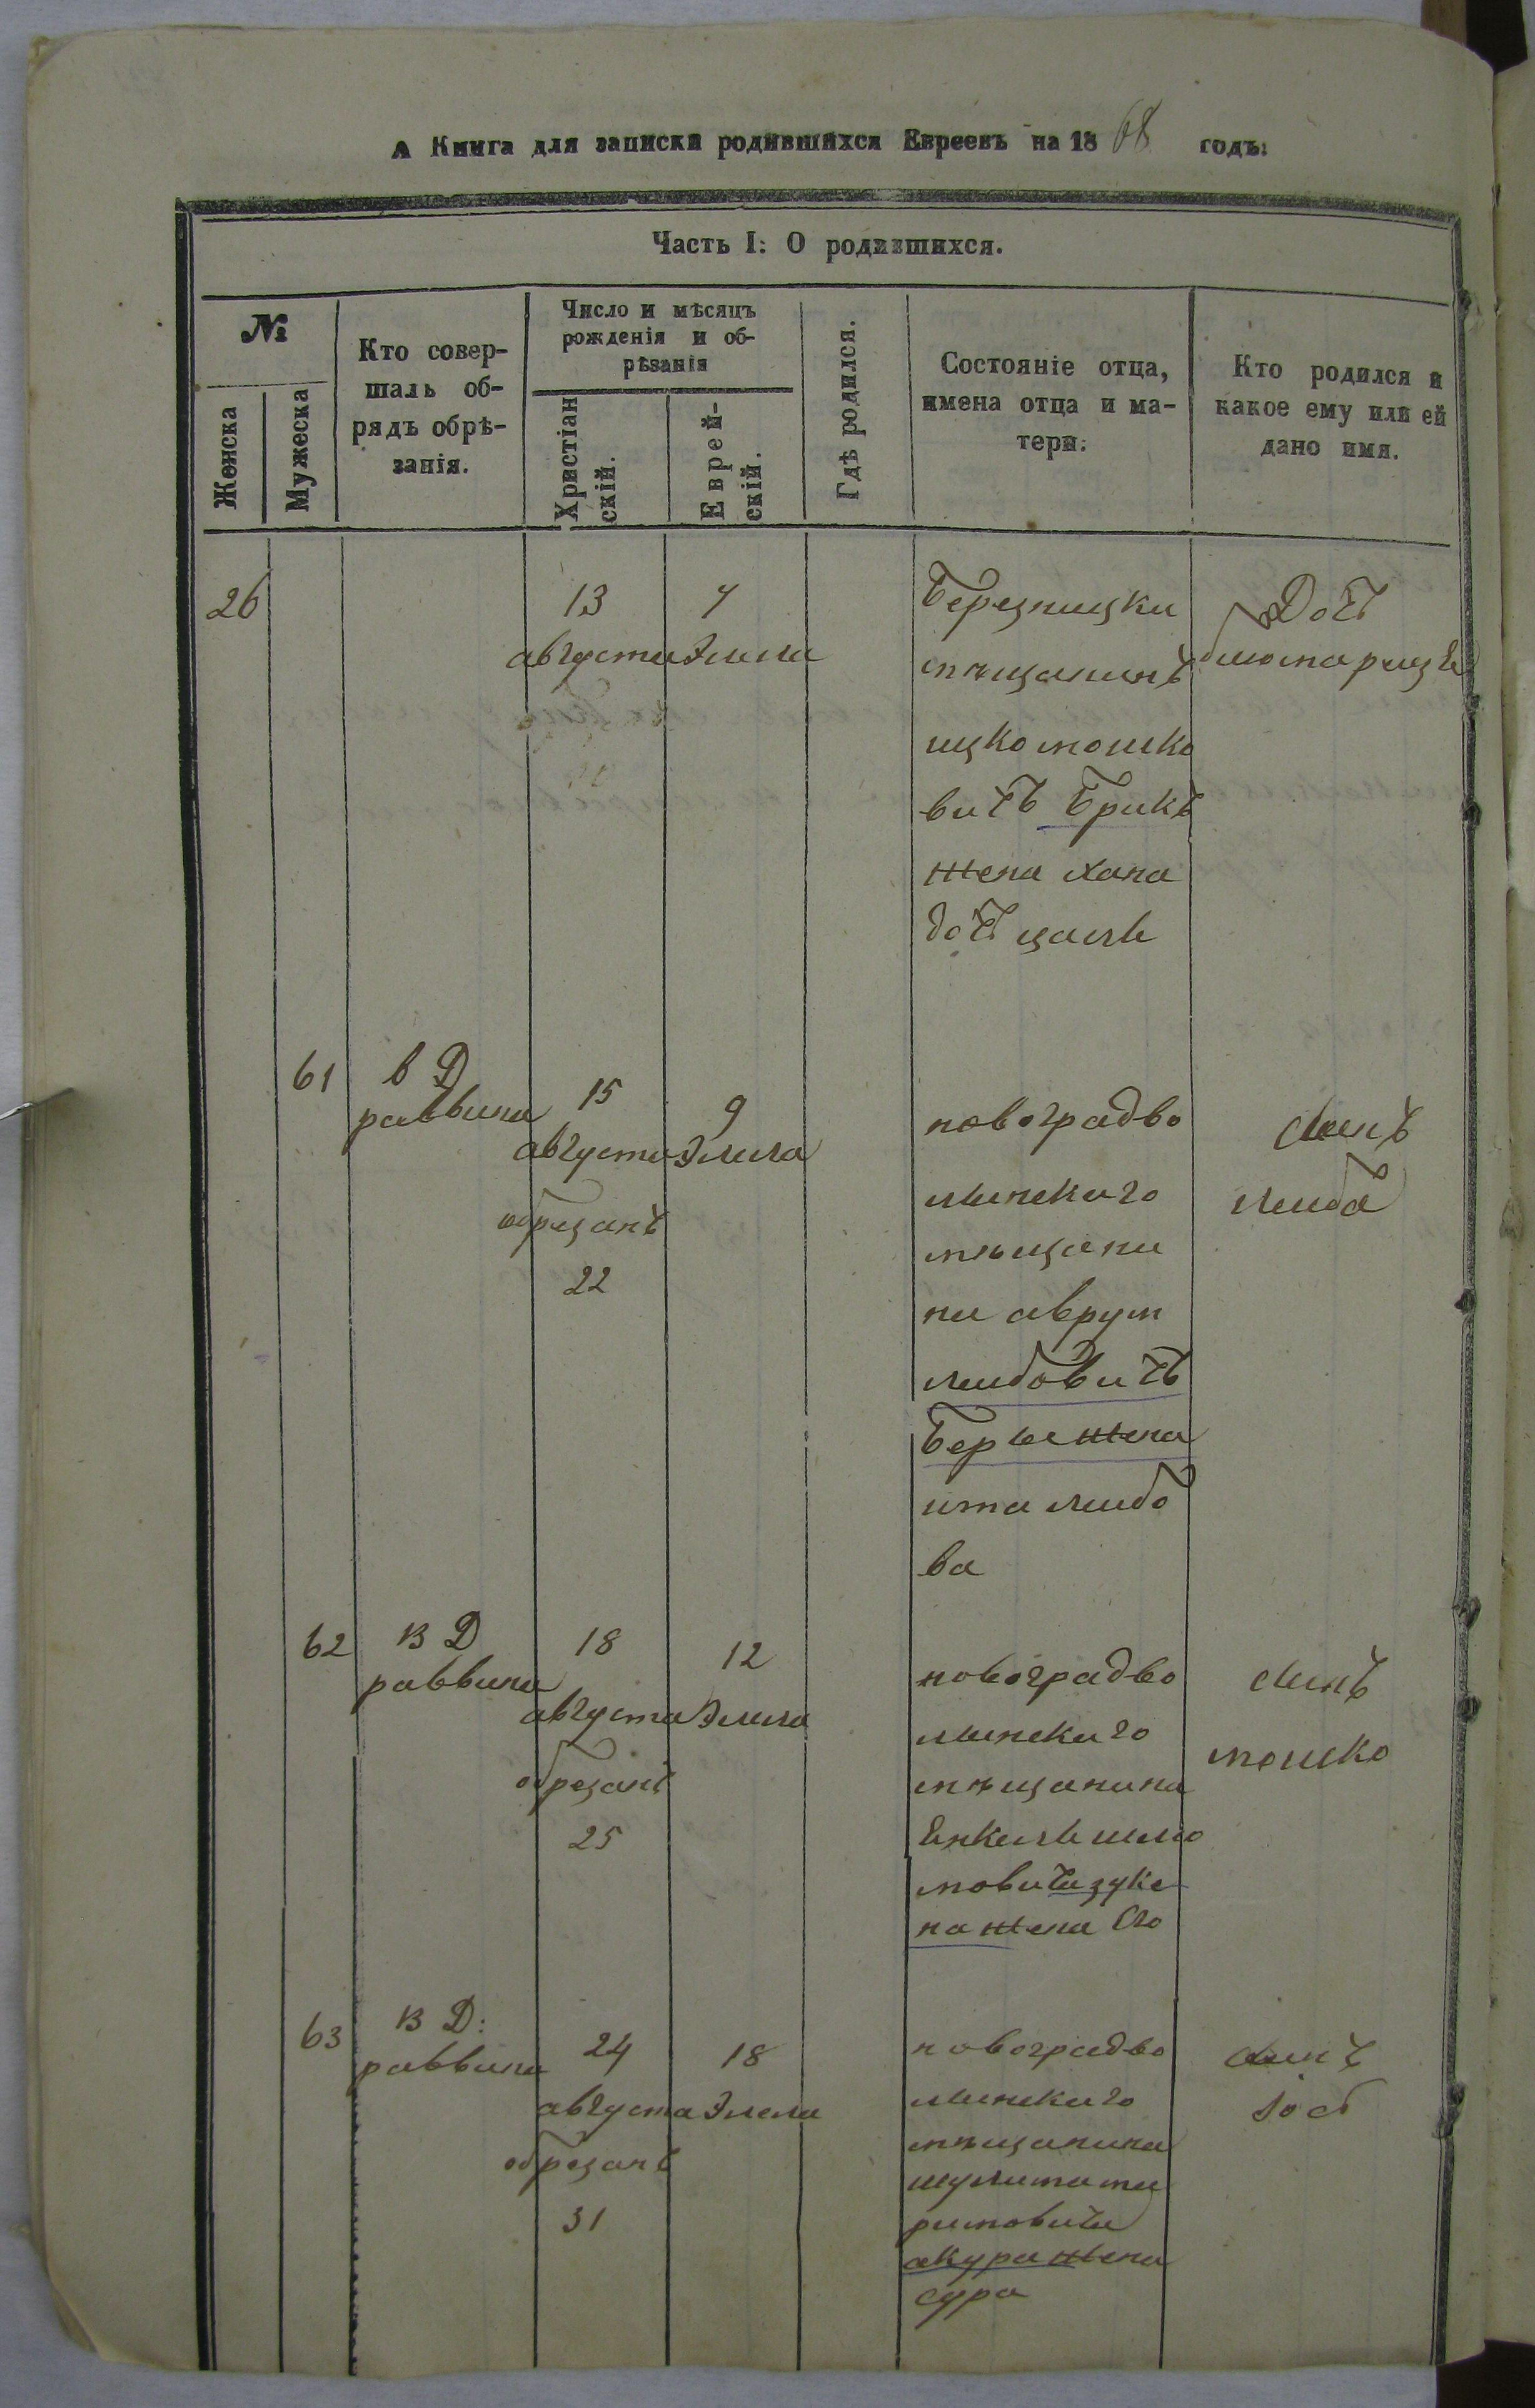 А Книга для записки родившихся Евреевъ на 1868 годъ:
Часть I: О родившихся.
№
Женска
Мужеска
Кто совер-
шалъ об-
рядъ обрѣ-
занія.
Число и мѣсяцъ
рожденія и об-
рѣзанія
Христіан
скій.
Еврей-
скій.
Гдѣ родился.
Состояніе отца,
имена отца и ма-
тери.
Кто родился и
какое ему или ей
дано имя.
26
13
августа
Элила
Березницки
мѣщанинъ
ицко мошко
вичъ Брикъ
жена хана
Дочь
61
в Д
раввина
15
августа
обрезанъ
22
9
Элила
новоградво
линскаго
мѣщани
на аврум
лейбовичъ
Берые жена
ита лейбо
ва
сынъ
лейба
62
в Д
раввина
18
августа
обрезанъ
25
12
Элила
новоградво
линскаго
мѣщанина
Енкель шлио
мовича зуке
на жена
сынъ
мошко
63
в Д:
раввина
24
августа
обрезанъ
31
18
Элела
новоградво
линскаго
мѣщанина
акура жена
сура
сынъ